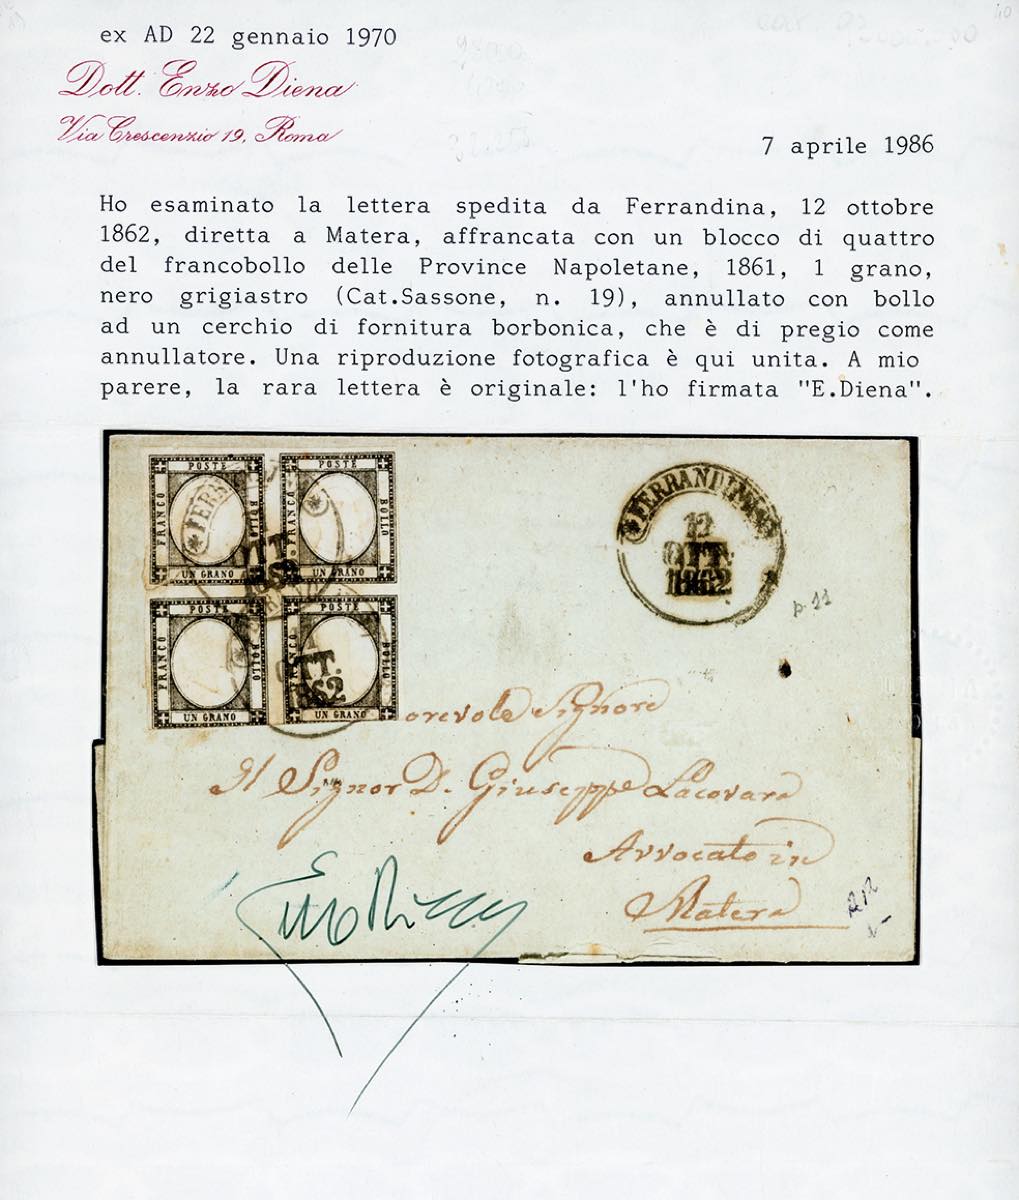 ex AD 22 gennaio 1970
Dott. Enzo Diena
Via Crescenzio 19, Roma
7 aprile 1986
Ho esaminato la lettera spedita da Ferrandina, 12 ottobre
1862, diretta a Matera, affrancata con un blocco di quattro
del francobollo delle Province Napoletane, 1861, 1 grano,
nero grigiastro (Cat.Sassone, n. 19), annullato con bollo
ad un cerchio di fornitura borbonica, che è di pregio come
annullatore. Una riproduzione fotografica è qui unita. A mio
parere, la rara lettera è originale: l'ho firmata "E.Diena".
POSTE
FRANCO
BOLLO
UN GRANO
POSTE
FRANCO
BOLLO
UN GRANO
FERR
TT.
1862
POSTE
FRANCO
BOLLO
UN GRANO
POSTE
FRANCO
UN GRANO
TT.
1862
FERRANDINA
12
OTT.
1862
p. 11
orevole Signore
Il Signor D. Giuseppe Lacovara
Avvocato in
Matera